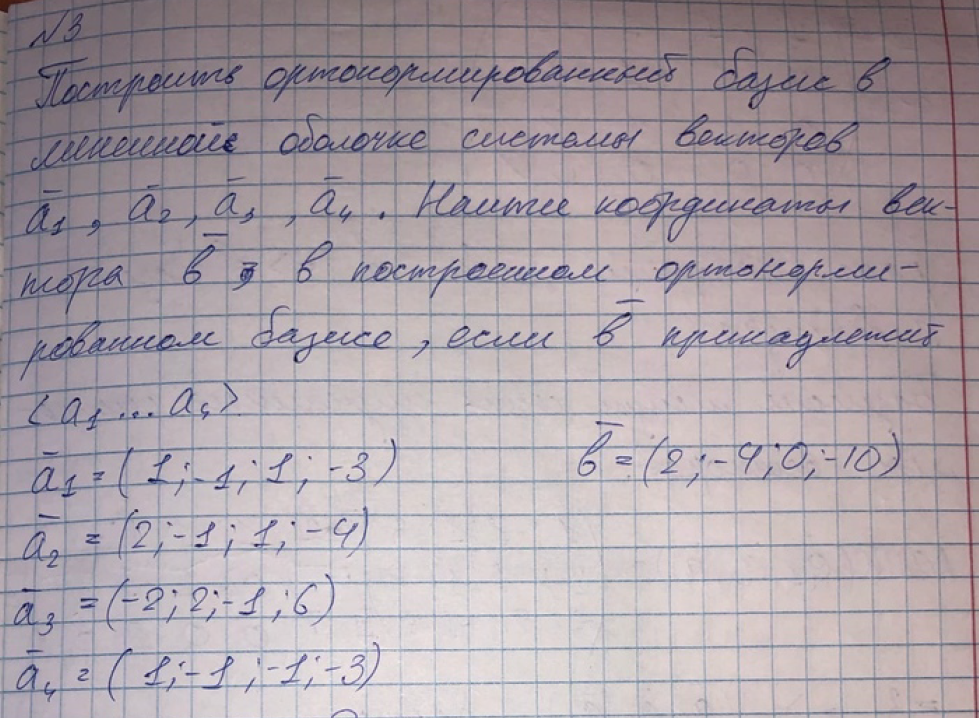 №3
Построить ортонормированный базис в
линейной оболочке системы векторов
a̅₁, a̅₂, a̅₃, a̅₄. Найти координаты век-
тора b̅ в построенном ортонорми-
рованном базисе, если b̅ принадлежит
<a₁...a₄>
a̅₁ = (1;-1;1;-3) b̅ = (2;-4;0;-10)
a̅₂ = (2;-1;1;-4)
a̅₃ = (-2;2;-1;6)
a̅₄ = (1;-1;-1;-3)